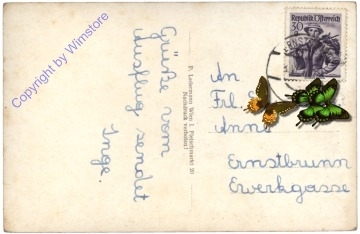 Grüße vom
Ausflug sendet
Inge.
P. Ledermann Wien I. Fleischmarkt 20
Nachdruck verboten!
An
Frl.
Anne
Ernstbrunn
Ewerkgasse
Republik Österreich
30
Copyright by Wimstore